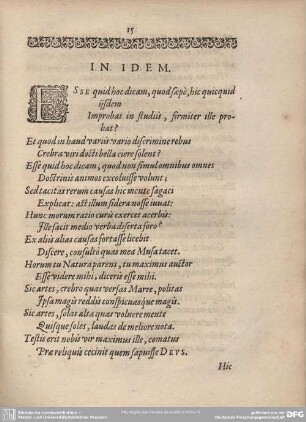 15
IN IDEM.
ESSE quid hoc dicam, quod sæpè, hic quicquid
ijsdem
Improbat in studiis, firmiter ille pro-
bat?
Et quod in haud variis vario discrimine rebus
Crebra viri docti bella ciere solent?
Esse quid hoc dicam, quod non simul omnibus omnes
Doctrinis animos excoluisse volunt;
Sed tacitas rerum causas hic mente sagaci
Explicat: ast illum sidera nosse iuvat:
Hunc morum ratio curis exercet acerbis:
Ille facit medio verba diserta foro?
Ex aliis alias causas fortasse licebit
Discere, consultò quas mea Musa tacet.
Horum tu Natura parens, tu maximus auctor
Esse videre mihi, diceris esse mihi.
Sic artes, crebro quas versas Marte, politas
Ipsa magis reddis conspicuasque magis.
Sic artes, solas alta quas volvere mente
Quisque soles, laudas de meliore nota.
Testis erit nobis vir maximus ille, comatus
Præ reliquis cecinit quem sapuisse DEVS.
Hic